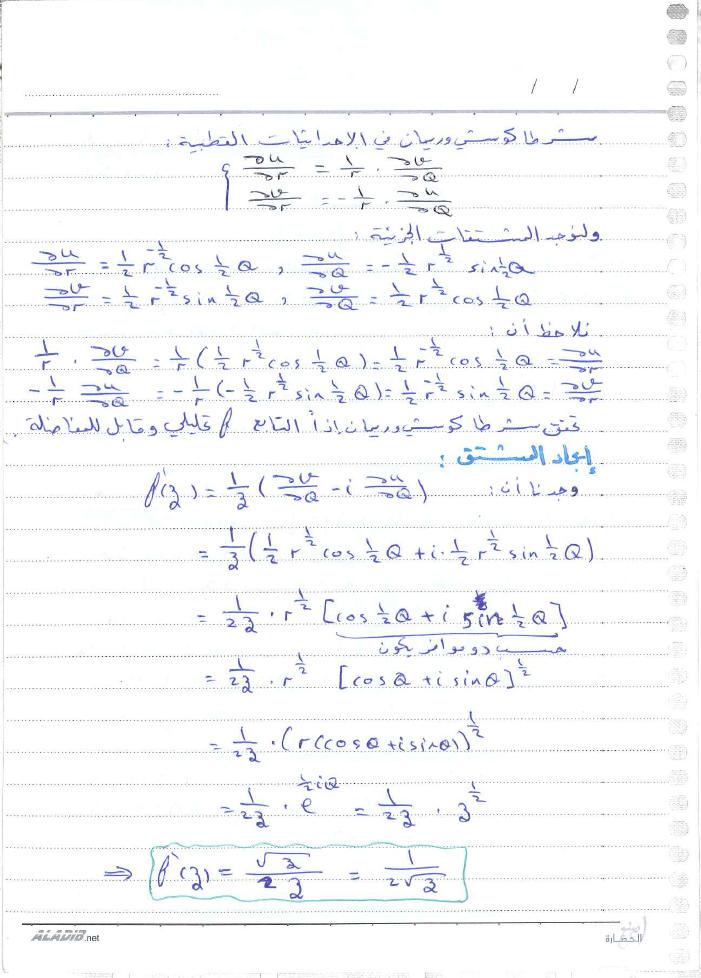 / /
شرطا كوشي وريمان في الاحداثيات القطبية :
∂u/∂r = 1/r · ∂v/∂θ
∂v/∂r = - 1/r · ∂u/∂θ
ولنوجد المشتقات الجزئية :
∂u/∂r = 1/2 r^(-1/2) cos 1/2 θ , ∂u/∂θ = - 1/2 r^(1/2) sin 1/2 θ
∂v/∂r = 1/2 r^(-1/2) sin 1/2 θ , ∂v/∂θ = 1/2 r^(1/2) cos 1/2 θ
نلاحظ أن :
1/r · ∂v/∂θ = 1/r (1/2 r^(1/2) cos 1/2 θ) = 1/2 r^(-1/2) cos 1/2 θ = ∂u/∂r
- 1/r ∂u/∂θ = - 1/r (- 1/2 r^(1/2) sin 1/2 θ) = 1/2 r^(-1/2) sin 1/2 θ = ∂v/∂r
تحقق شرطا كوشي وريمان إذاً التابع f تحليلي وقابل للمفاضلة .
إيجاد المشتق :
وجدنا أن : f'(z) = 1/z (∂v/∂θ - i ∂u/∂θ)
= 1/z (1/2 r^(1/2) cos 1/2 θ + i · 1/2 r^(1/2) sin 1/2 θ)
= 1/2z · r^(1/2) [cos 1/2 θ + i sin 1/2 θ]
حسب دوموافر يكون
= 1/2z · r^(1/2) [cos θ + i sin θ]^(1/2)
= 1/2z · (r(cos θ + i sin θ))^(1/2)
= 1/2z · e^(1/2 iθ) = 1/2z · z^(1/2)
⇒ f'(z) = √z / 2z = 1 / 2√z
ALADIB.net
الحضارة